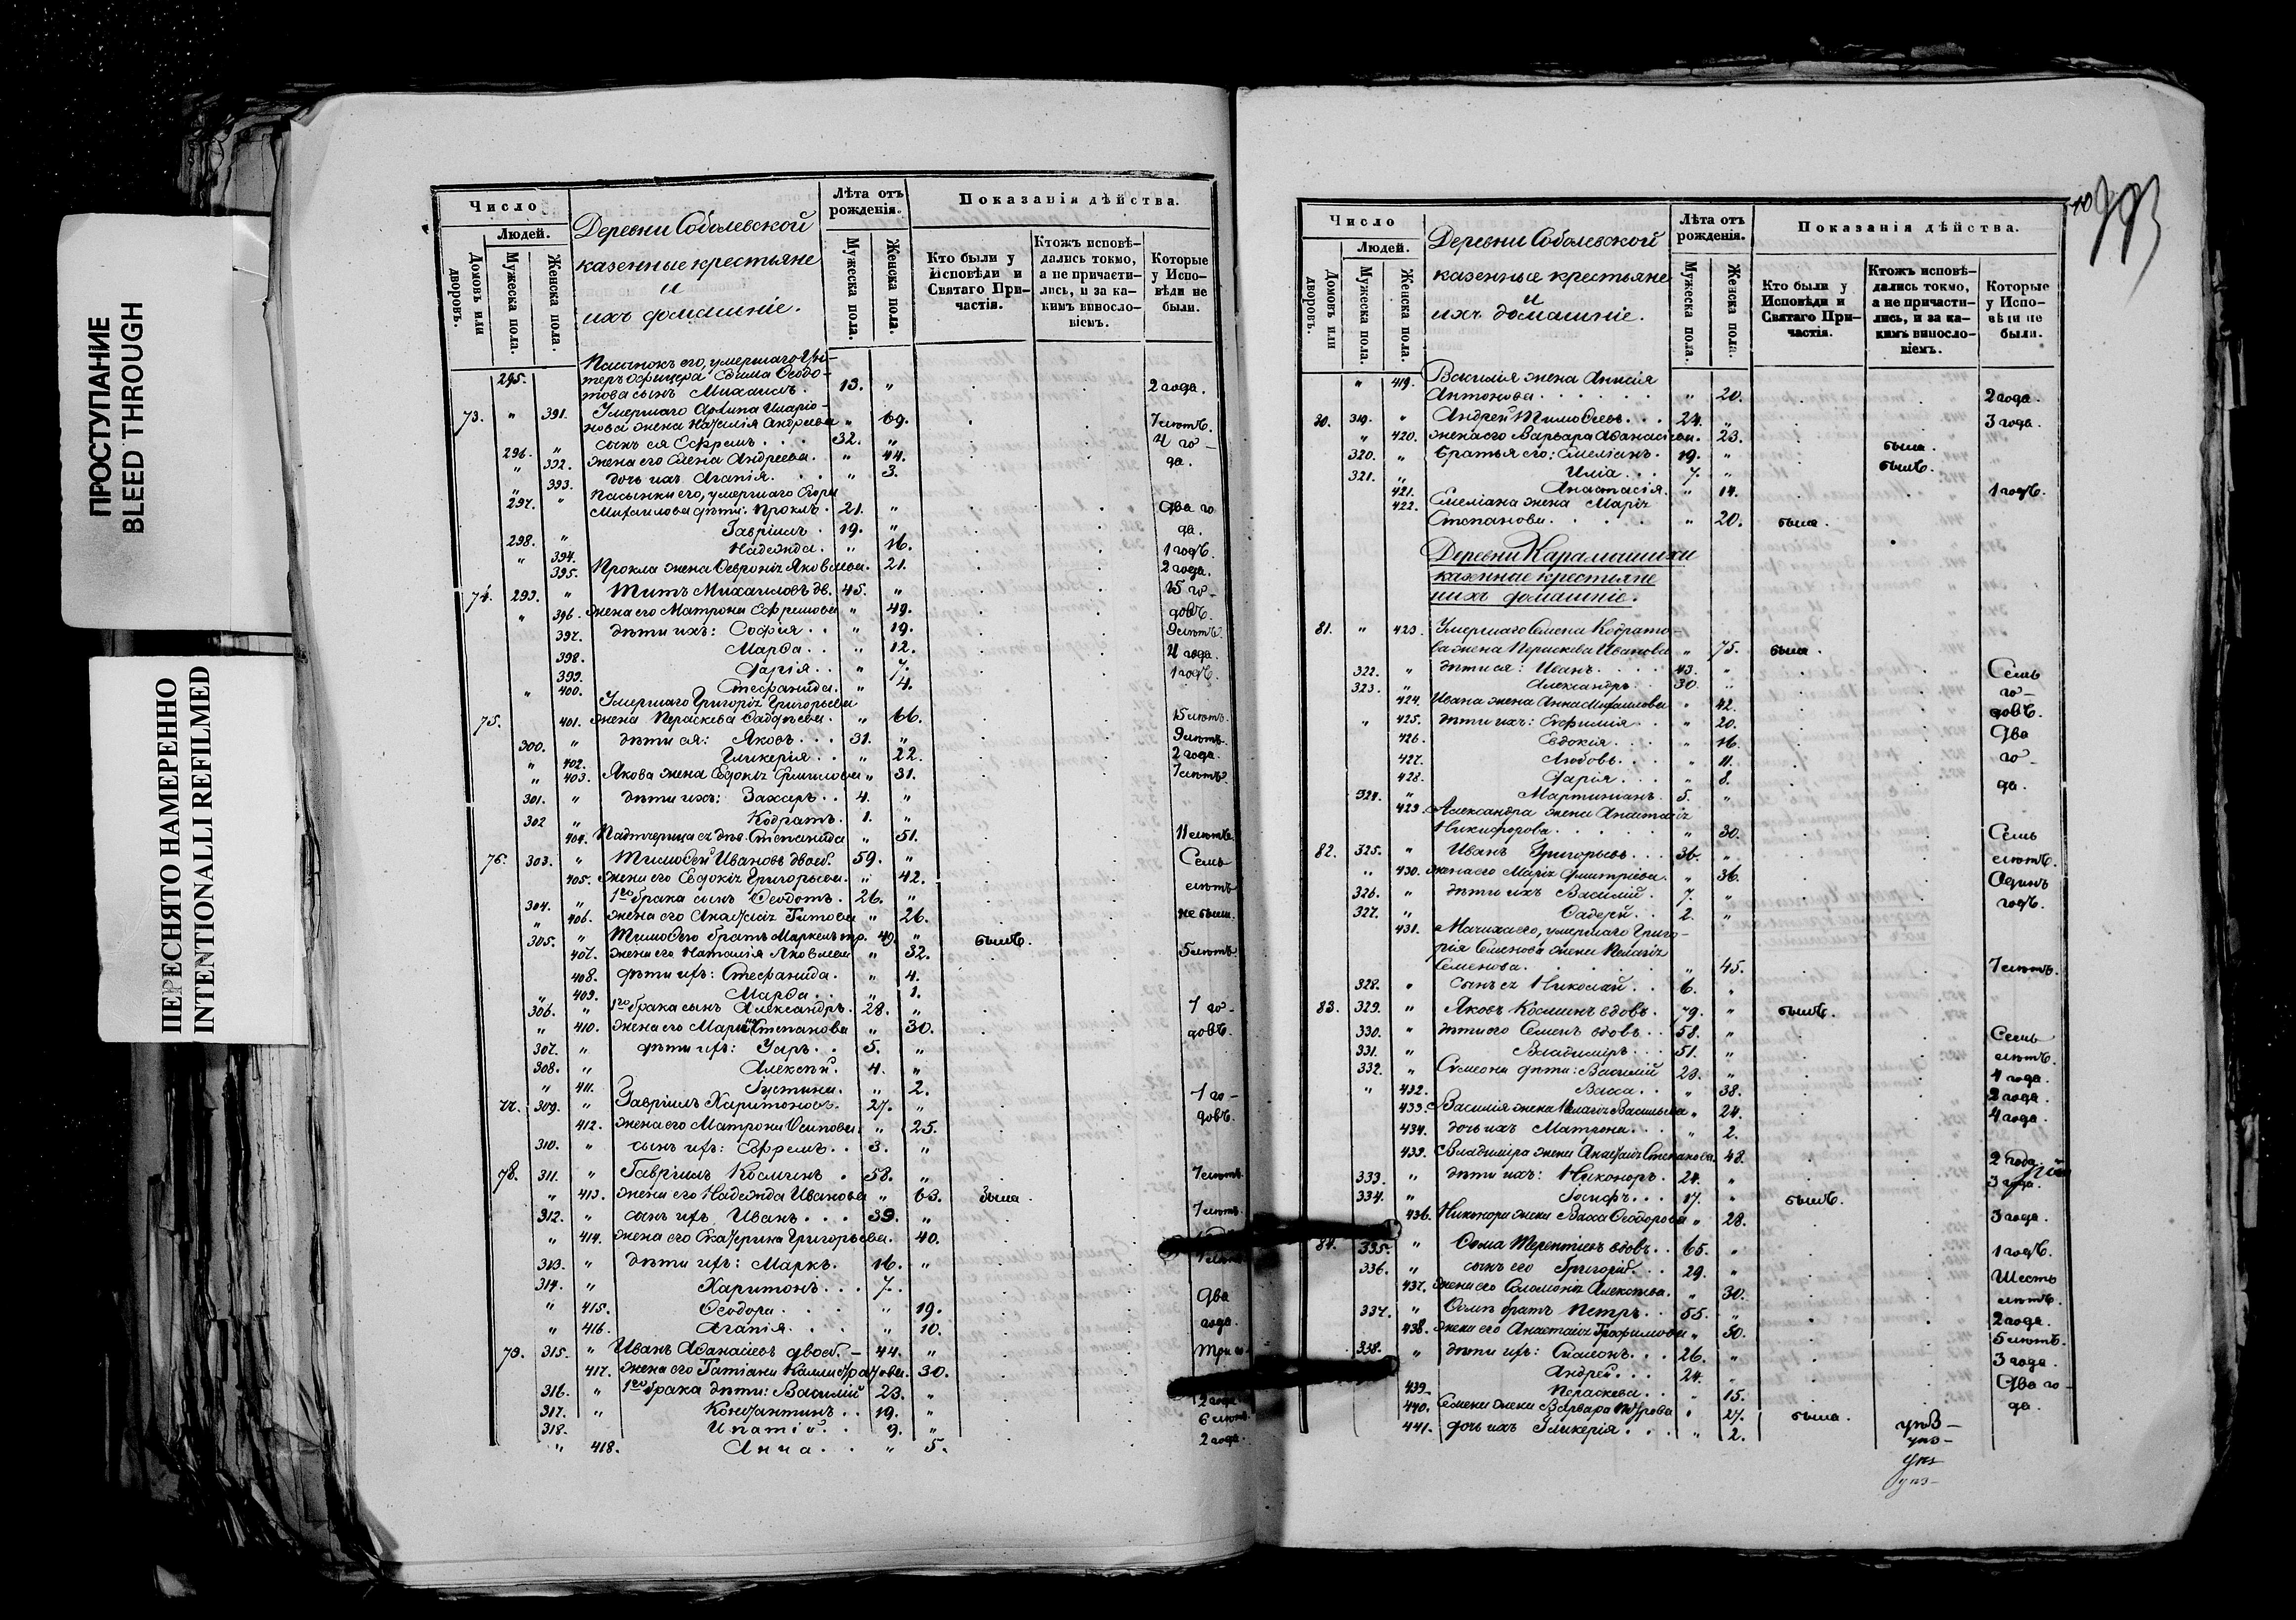 ПРОСТУПАНИЕ
BLEED THROUGH
ПЕРЕСНЯТО НАМЕРЕННО
INTENTIONALLI REFILMED
Число
Людей.
Домовъ или дворовъ.
Мужеска пола.
Женска пола.
Деревни Соболевской
казенные крестьяне
и
ихъ домашніе.
Лѣта отъ рожденія.
Мужеска пола.
Женска пола.
Показанія дѣйства.
Кто были у Исповѣди и Святаго Причастія.
Ктожъ исповѣдались токмо, а не причастились, и за какимъ винословіемъ.
Которые у Исповѣди не были.
295. Пасынокъ его, умершаго Ун-
теръ офицера Ѳомы Ѳедо-
това сынъ Михаилъ 13. " 2 года.
73. " 391. Умершаго Архипа Иларіо-
нова жена Наталія Андреева " 69. 7 лѣтъ.
296. " сынъ ея Ефремъ 32. " 4 го-
" 392. жена его Елена Андреева. " 44. да.
" 393. дочь ихъ Агапія. " 3.
297. " Пасынки его, умершаго Егора
Михаилова дѣти: Проклъ. 21. " Два го
298. " Гавріилъ. 19. " да.
" 394. Надежда. " 16. 1 годъ.
395. Прокла жена Ѳевронія Яковлева. 21. 2 года.
74. 299. " Титъ Михаиловъ дв. 45. " 15 го-
" 396. жена его Матрона Ефремова " 49. довъ.
397. дѣти ихъ: Софія. " 19. 9 лѣтъ.
398. Марѳа. " 12. 4 года.
399. Дарія. " 7. 1 годъ.
" 400. Стефанида. " 4.
Умершаго Григорія Григорьева
75. 401. жена Параскева Ѳаддѣева. " 66. 15 лѣтъ.
300. " дѣти ея: Яковъ. 31. " 9 лѣтъ.
" 402. Гликерія. " 22. 2 года.
" 403. Якова жена Евдокія " 31. 7 лѣтъ.
301. " дѣти ихъ: Захаръ. 4. "
302 " Кодратъ. 1. "
404. Падчерица Степанида " 51. 11 лѣтъ.
76. 303. " Тимоѳей Ивановъ двоеб. 59. " Семь
405. жена его Евдокія Григорьева. " 42. лѣтъ
304. " 1го брака сынъ Ѳеодотъ. 26. "
" 406. жена его Анастасія Титова " 26. не была.
305. " Тимоѳея братъ Маркелъ тр. 49. " былъ.
407. жена его Наталія Яковлева " 32. 5 лѣтъ
408. дѣти ихъ: Стефанида. " 4.
" 409. Марѳа. " 1.
306. " 1го брака сынъ Александръ. 28. " 7 го-
" 410. жена его Марія Степанова " 30. довъ.
307. " дѣти ихъ: Уаръ. 5. "
308. " Алексѣй. 4. "
" 411. Іустина. " 2.
77. 309. " Гавріилъ Харитоновъ. 27. " 1 го-
412. жена его Матрона Осипова. " 25. довъ.
310. " сынъ ихъ: Ефремъ. 3. "
78. 311. " Гавріилъ Косминъ. 58. " 7 лѣтъ.
" 413. жена его Надежда Иванова " 63. была.
312. " сынъ ихъ Иванъ. 39. " 7 лѣтъ.
" 414. жена его Екатерина Григорьева. 40.
313. " дѣти ихъ: Маркъ. 16. "
314. " Харитонъ. 7. Два
" 415. Ѳеодора. " 19. года.
" 416. Агапія. " 10.
79. 315. " Иванъ Аѳанасіевъ двоеб. 44. " Три го-
417. жена его Татіана Каллистратова. 30.
316. " 1го брака дѣти: Василій 23. " 2 года
317. " Константинъ. 19. " 6 лѣтъ.
318. Ипатій. 9. "
" 418. Анна. " 5. 2 года.
Число
Людей.
Домовъ или дворовъ.
Мужеска пола.
Женска пола.
Деревни Соболевской
казенные крестьяне
и
ихъ домашніе.
Лѣта отъ рожденія.
Мужеска пола.
Женска пола.
Показанія дѣйства.
Кто были у Исповѣди и Святаго Причастія.
Ктожъ исповѣдались токмо, а не причастились, и за какимъ винословіемъ.
Которые у Исповѣди не были.
" 419. Василія жена Анисія
Антонова. " 20. 2 года.
80. 319. " Андрей Тимоѳеевъ. 24. " 3 года.
" 420. жена его Варвара Аѳанасьева. 23. была.
320. " Братья его: Емеліанъ. 19. " былъ.
321. " Илія. 7. "
421. Анастасія. " 14. 1 годъ.
422. Емеліана жена Марія
Степанова. " 20. была.
Деревни Карамашихи
казенные крестьяне
и ихъ домашніе.
81. " 423. Умершаго Семена Кодрато-
ва жена Параскева Иванова " 75. была.
322. " дѣти ея: Иванъ. 43. " Семь
323. " Александръ. 30. " го-
424. Ивана жена Анна Михаилова " 42. довъ.
" 425. дѣти ихъ: Евфимія. " 20. Два
426. Евдокія. " 16. го-
427. Любовь. " 11. да.
428. Дарія. " 8.
324. Мартиніанъ. 5. "
429. Александра жена Анастасія
Никифорова. " 30. Семь
82. 325. " Иванъ Григорьевъ. 36. " лѣтъ.
" 430. жена его Марія Дмитріева. " 36. Одинъ
326. " дѣти ихъ Василій. 7. " годъ.
327. " Ѳадей. 2. "
431. Мачиха его, умершаго Григо-
рія Семенова жена Пелагія
Семенова. " 45. 7 лѣтъ.
328. " Сынъ ея Николай. 6. "
83. 329. " Яковъ Косминъ вдовъ. 79. " былъ.
330. " дѣти его Семенъ вдовъ. 58. " Семь
331. " Владиміръ. 51. " лѣтъ.
332. " Симеона дѣти: Василій 23. " 4 года.
" 432. Васса. " 38. 2 года.
433. Василія жена Пелагія Васильева " 24. 4 года.
434. дочь ихъ Матрона. " 2.
435. Владиміра жена Анастасія Степанова. 48. 2 года
333. " дѣти ихъ: Никоноръ. 24. " 3 года.
334. " Іосифъ. 17. " былъ.
436. Никонора жена Васса Ѳеодорова " 28. 3 года.
84. 335. " Ѳома Терентіевъ вдовъ. 65. " 1 годъ.
336. " сынъ его Григорій. 29. " Шесть
437. жена его Соломонія Алексѣева. " 30. лѣтъ.
337. " Ѳомы братъ Петръ. 55. " 2 года.
438. жена его Анастасія Трофимова " 50. 5 лѣтъ.
338. " дѣти ихъ: Симеонъ. 26. " 3 года.
Андрей. 24. " Два го-
439. Параскева. " 15. да.
440. Семена жена Варвара Петрова " 27. была.
441. дочь ихъ Гликерія. " 2.